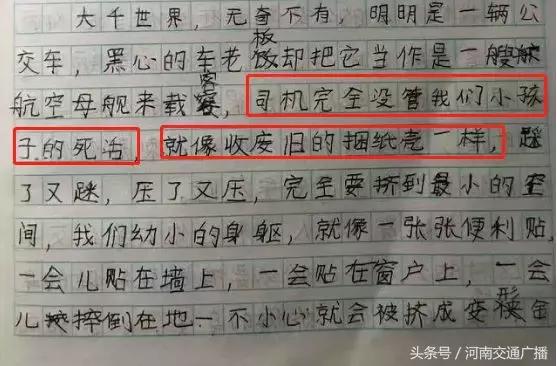 大千世界，无奇不有，明明是一辆公
交车，黑心的车老板却把它当作是一艘
航空母舰来载客，司机完全没管我们小孩
子的死活，就像收废旧的捆纸壳一样，踩
了又踩，压了又压，完全要挤到最小的空
间，我们幼小的身躯，就像一张张便利贴，
一会儿贴在墙上，一会贴在窗户上，一会
儿摔倒在地一不小心就会被挤成变形金
头条号／河南交通广播